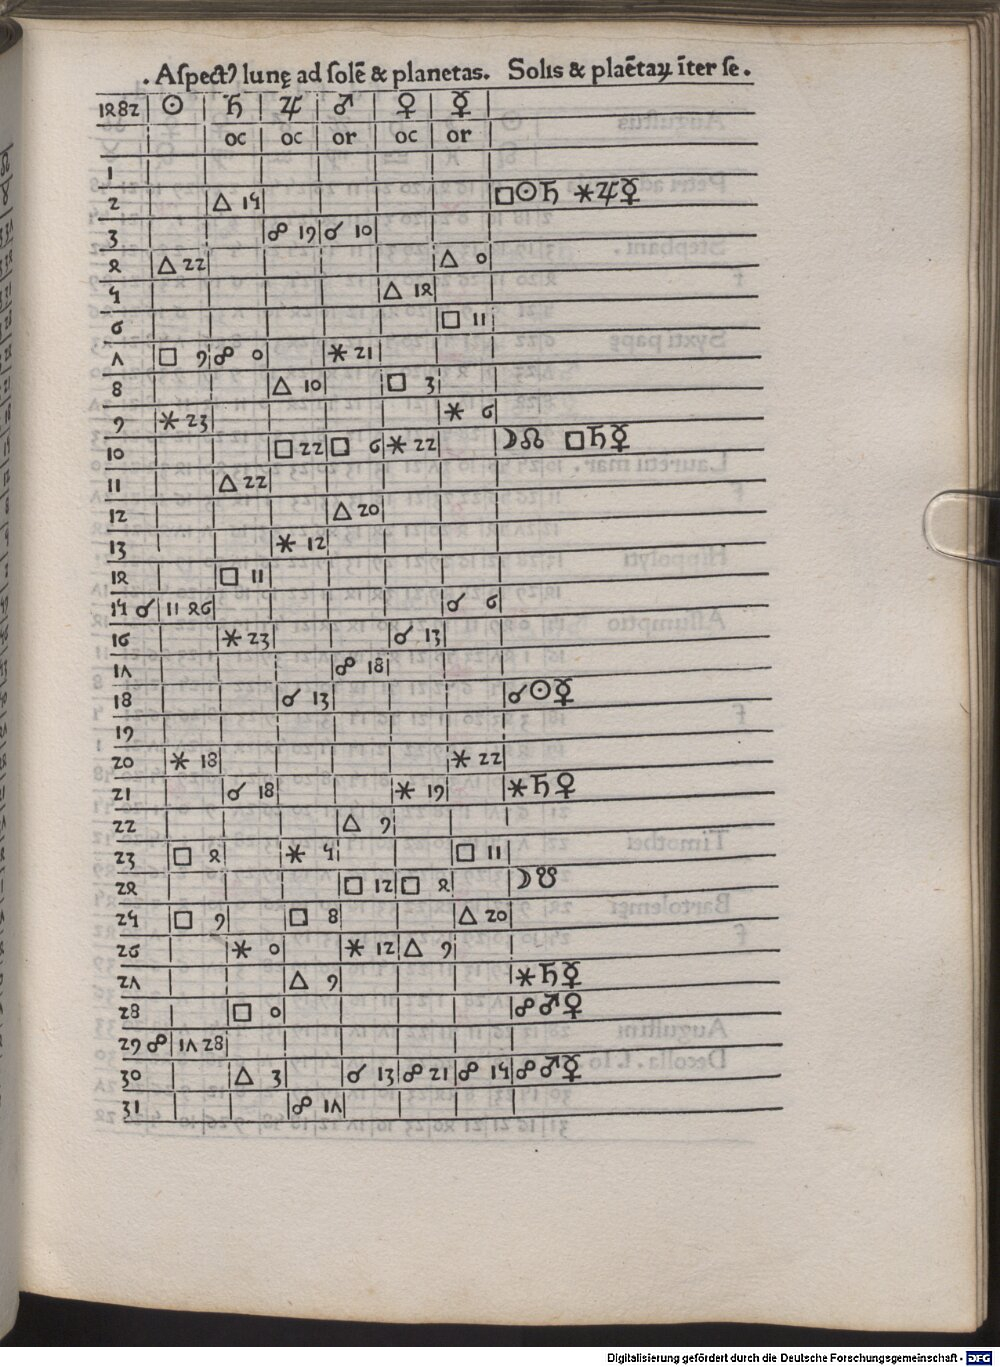 . Aſpectꝰ lunę ad ſolē & planetas. Solis & plaētaꝝ īter ſe .
1482 ☉ ♄ ♃ ♂ ♀ ☿
oc oc or oc or
1
2 △ 15 □☉♄ ⚹♃☿
3 ☍ 19 ☌ 10
4 △ 22 △ 0
5 △ 14
6 □ 11
7 □ 9 ☍ 0 ⚹ 21
8 △ 10 □ 3
9 ⚹ 23 ⚹ 6
10 □ 22 □ 6 ⚹ 22 ☽☊ □♄☿
11 △ 22
12 △ 20
13 ⚹ 12
14 □ 11
15 ☌ 11 46 ☌ 6
16 ⚹ 23 ☌ 13
17 ☍ 18
18 ☌ 13 ☌☉☿
19
20 ⚹ 18 ⚹ 22
21 ☌ 18 ⚹ 19 ⚹♄♀
22 △ 9
23 □ 4 ⚹ 5 □ 11
24 □ 12 □ 4 ☽☋
25 □ 9 □ 8 △ 20
26 ⚹ 0 ⚹ 12 △ 9
27 △ 9 ⚹♄☿
28 □ 0 ☍♂♀
29 ☍ 17 28
30 △ 3 ☌ 13 ☍ 21 ☍ 15 ☍♂☿
31 ☍ 17
Digitalisierung gefördert durch die Deutsche Forschungsgemeinschaft - DFG